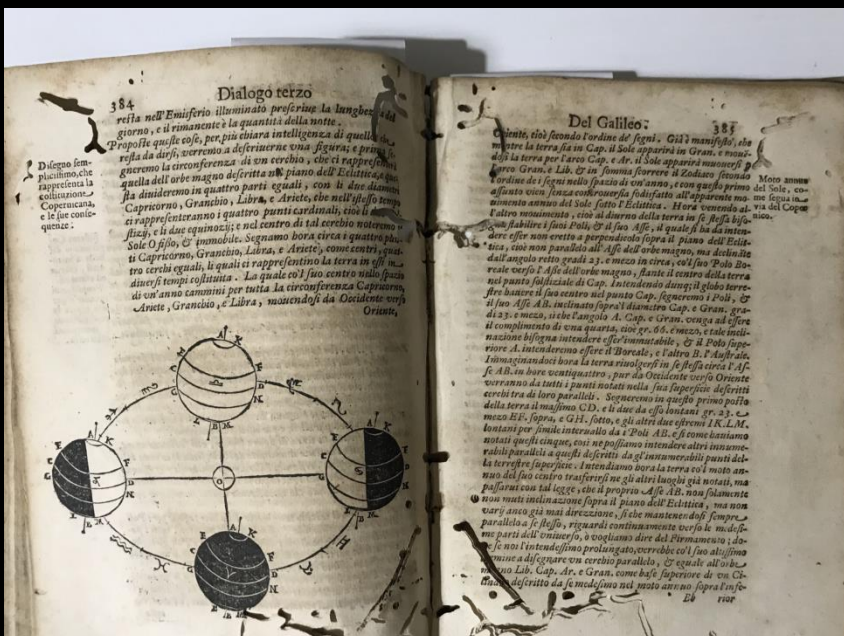 384
Dialogo terzo
resta nell'Emisferio illuminato prescriue la lunghezza del
giorno, e il rimanente è la quantità della notte.
Proposte queste cose, per più chiara intelligenza di quello che
resta da dirsi, verremo a descriuerne vna figura; e prima se-
gneremo la circonferenza di vn cerchio, che ci rappresenterà
quella dell'orbe magno descritta nel piano dell'Eclittica, e que-
sta diuideremo in quattro parti eguali, con li due diametri
Capricorno, Granchio, Libra, e Ariete, che nell'istesso tempo
ci rappresenteranno i quattro punti cardinali, cioè li due sol-
stizij, e li due equinozzij; e nel centro di tal cerchio noteremo il
Sole O fisso, & immobile. Segnamo hora circa i quattro pun-
ti Capricorno, Granchio, Libra, e Ariete, come centri, quat-
tro cerchi eguali, li quali ci rappresentino la terra in essi in
diuersi tempi costituita. La quale co'l suo centro nello spazio
di vn'anno cammini per tutta la circonferenza Capricorno,
Ariete, Granchio, e Libra, mouendosi da Occidente verso
Oriente,
Disegno sem-
plicissimo, che
rappresenta la
costituzione
Copernicana,
e le sue conse-
quenze:
A K
E F
C D
G N
L B M
A K
E F
C D
G N
I B M
O
A K
E F
C D
G N
L B M
A K
E F
C D
G N
L B M
Del Galileo.
385
Oriente, cioè secondo l'ordine de' segni. Già è manifesto, che
mentre la terra sia in Cap. il Sole apparirà in Gran. e mouen-
dosi la terra per l'arco Cap. e Ar. il Sole apparirà muouersi per
l'arco Gran. e Lib. & in somma scorrere il Zodiaco secondo
l'ordine de i segni nello spazio di vn'anno, e con questo primo
assunto vien senza controuersia sodisfatto all'apparente mo-
uimento annuo del Sole sotto l'Eclittica. Hora venendo al-
l'altro mouimento, cioè al diurno della terra in se stessa biso-
gna stabilire i suoi Poli, & il suo Asse, il quale si ha da inten-
dere esser non eretto a perpendicolo sopra il piano dell'Eclit-
tica, cioè non parallelo all'Asse dell'orbe magno, ma declinante
dall'angolo retto gradi 23. e mezo in circa, co'l suo Polo Bo-
reale verso l'Asse dell'orbe magno, stante il centro della terra
nel punto solstiziale di Cap. Intendendo dunq; il globo terre-
stre hauere il suo centro nel punto Cap. segneremo i Poli, &
il suo Asse AB. inclinato sopra'l diametro Cap. e Gran. gra-
di 23. e mezo, si che l'angolo A. Cap. e Gran. venga ad essere
il complimento di vna quarta, cioè gr. 66. e mezo, e tale incli-
nazione bisogna intendere esser'immutabile, & il Polo supe-
riore A. intenderemo essere il Boreale, e l'altro B. l'Australe.
Immaginandoci hora la terra riuolgersi in se stessa circa l'As-
se AB. in hore ventiquattro, pur da Occidente verso Oriente
verranno da tutti i punti notati nella sua superficie descritti
cerchi tra di loro paralleli. Segneremo in questo primo posto
della terra il massimo CD. e li due da esso lontani gr. 23. e
mezo EF. sopra, e GH. sotto, e gli altri due estremi IK. LM.
lontani per simile interuallo da i Poli AB. e si come hauiamo
notati questi cinque, così ne possiamo intendere altri innume-
rabili paralleli a questi descritti da gl'innumerabili punti del-
la terrestre superficie. Intendiamo hora la terra co'l moto an-
nuo del suo centro trasferirsi ne gli altri luoghi già notati, ma
passarui con tal legge, che il proprio Asse AB. non solamente
non muti inclinazione sopra il piano dell'Eclittica, ma non
varij anco già mai direzione, si che mantenendosi sempre
parallelo a se stesso, riguardi continuamente verso le medesi-
me parti dell'vniuerso, ò vogliamo dire del Firmamento; do-
ue se noi l'intendessimo prolungato, verrebbe co'l suo altissimo
termine a disegnare vn cerchio parallelo, & eguale all'orbe
magno Lib. Cap. Ar. e Gran. come base superiore di vn Ci-
lindro descritto da se medesimo nel moto annuo sopra l'infe-
Bb rior
Moto annuo
del Sole, co-
me segua in
via del Coper
nico.